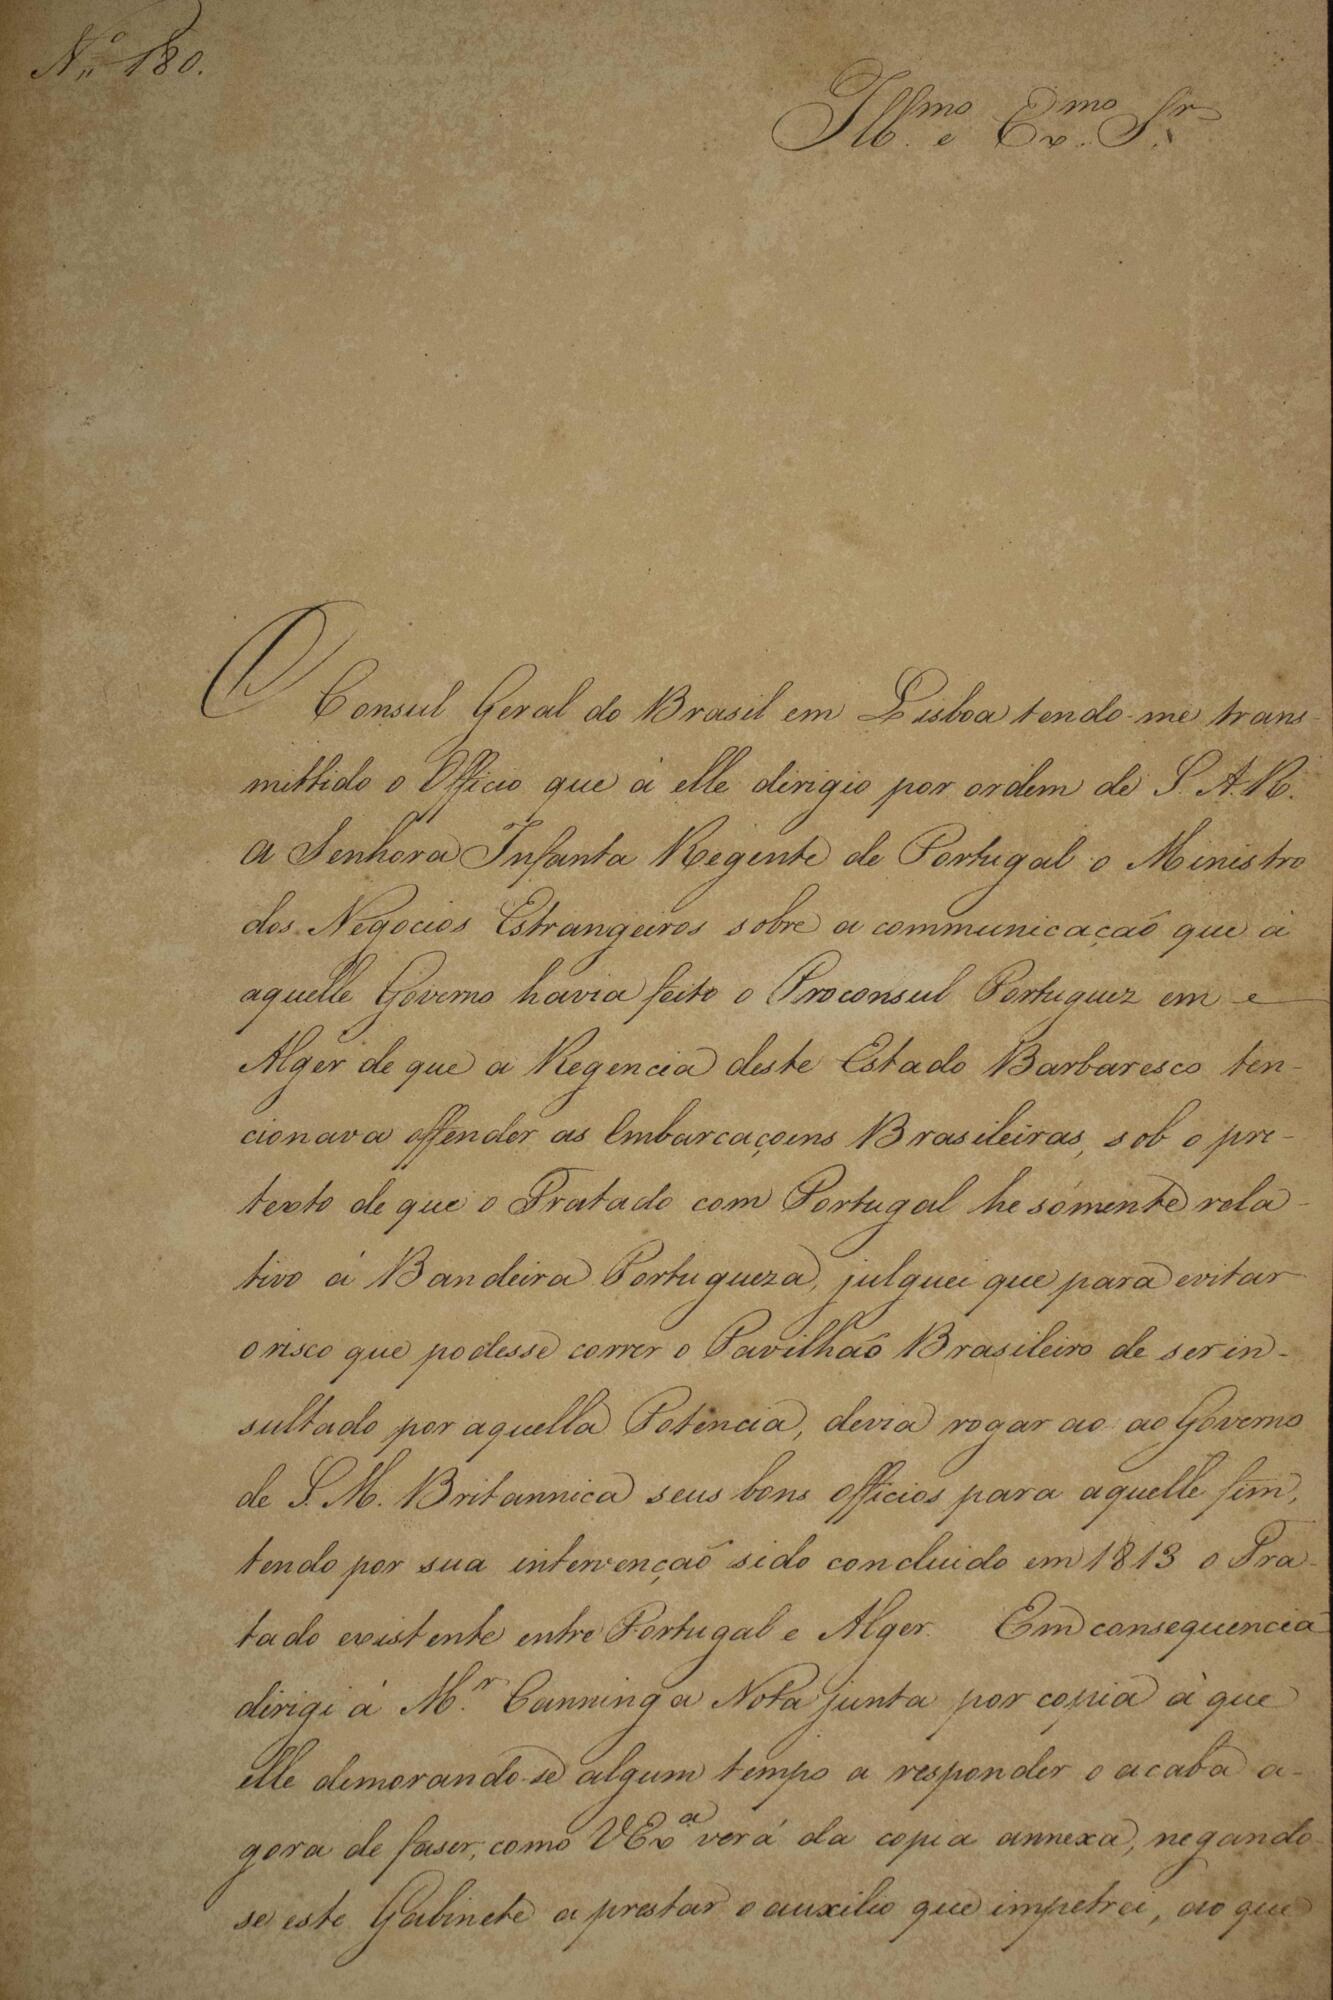 Nº 180.
Illmo. e Exmo. Sr.
O Consul Geral do Brasil em Lisboa tendo-me trans-
mittido o Officio que á elle dirigio por ordem de S. A. R.
a Senhora Infanta Regente de Portugal o Ministro
dos Negocios Estrangeiros sobre a communicaçaõ que á
aquelle Governo havia feito o Proconsul Portuguez em e
Alger de que a Regencia deste Estado Barbaresco ten-
cionava offender as Embarcaçoens Brasileiras, sob o pre-
texto de que o Tratado com Portugal he sómente rela-
tivo á Bandeira Portugueza, julguei que para evitar
o risco que podesse correr o Pavilhaõ Brasileiro de ser in-
sultado por aquella Potencia, devia rogar ao ao Governo
de S. M. Britannica seus bons officios para aquelle fim,
tendo por sua intervençaõ sido concluido em 1813 o Tra-
tado existente entre Portugal e Alger. Em consequencia
dirigi á Mr. Canning a Nota junta por copia à que
elle demorando-se algum tempo a responder o acaba a-
gora de faser, como VExa. verá da copia annexa, negando-
se este Gabinete a prestar o auxilio que impetrei, ao que